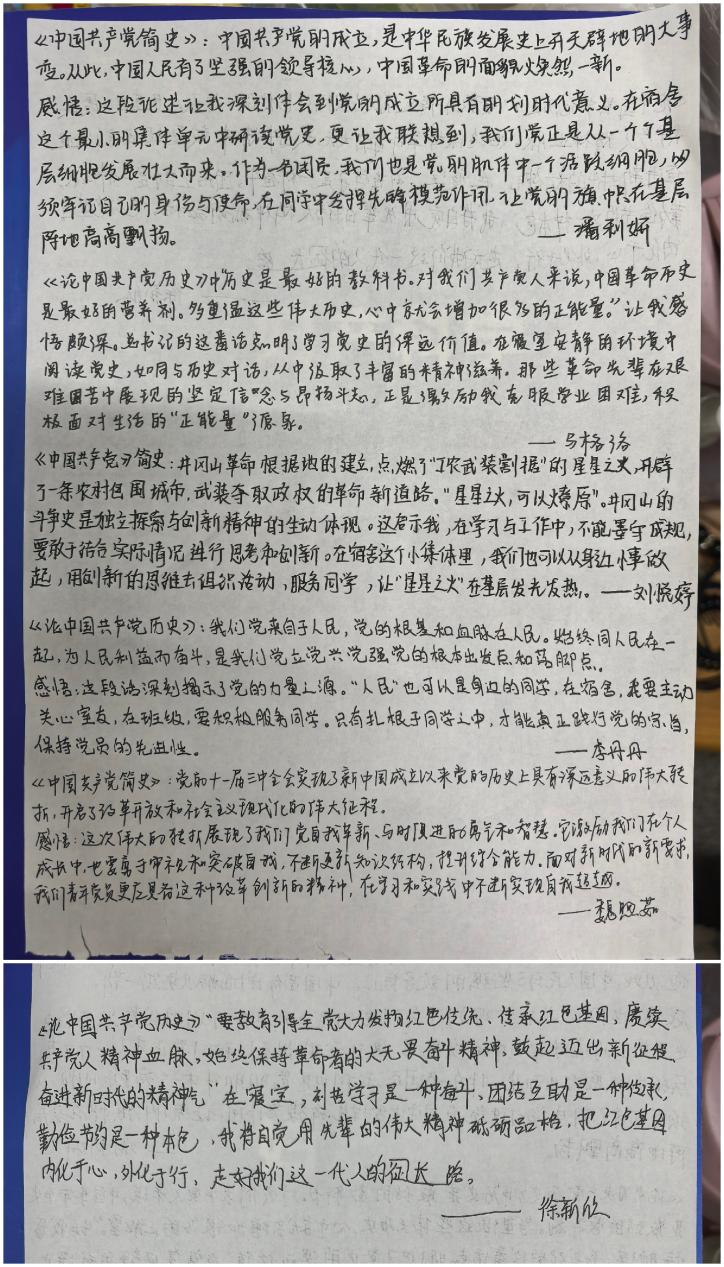 《中国共产党简史》：中国共产党的成立，是中华民族发展史上开天辟地的大事
变。从此，中国人民有了坚强的领导核心，中国革命的面貌焕然一新。
感悟：这段论述让我深刻体会到党的成立所具有的划时代意义。在宿舍
这个最小的集体单元中研读党史，更让我联想到，我们党正是从一个个基
层细胞发展壮大而来。作为一名团员，我们也是党的肌体中一个活跃细胞，必
须牢记自己的身份与使命，在同学中发挥先锋模范作用，让党的旗帜在基层
阵地高高飘扬。
——潘利妍
《论中国共产党历史》中"历史是最好的教科书。对我们共产党人来说，中国革命历史
是最好的营养剂。多重温这些伟大历史，心中就会增加很多的正能量。"让我感
悟颇深。总书记的这番话点明了学习党史的深远价值。在寝室安静的环境中
阅读党史，如同与历史对话，从中汲取了丰富的精神滋养。那些革命先辈在艰
难困苦中展现的坚定信念与昂扬斗志，正是激励我克服学业困难，积
极面对生活的"正能量"源泉。
——马格洛
《中国共产党》简史：井冈山革命根据地的建立，点燃了"工农武装割据"的星星之火，开辟
了一条农村包围城市，武装夺取政权的革命新道路。"星星之火，可以燎原"。井冈山的
斗争史是独立探索与创新精神的生动体现。这启示我，在学习与工作中，不能墨守成规，
要敢于结合实际情况进行思考和创新。在宿舍这个小集体里，我们也可以从身边小事做
起，用创新的思维去组织活动，服务同学，让"星星之火"在基层发光发热。——刘悦婷
《论中国共产党历史》：我们党来自于人民，党的根基和血脉在人民。始终同人民在一
起，为人民利益而奋斗，是我们党立党兴党强党的根本出发点和落脚点。
感悟：这段话深刻揭示了党的力量之源。"人民"也可以是身边的同学，在宿舍，我要主动
关心室友，在班级，要积极服务同学。只有扎根于同学之中，才能真正践行党的宗旨，
保持党员的先进性。
——李丹丹
《中国共产党简史》：党的十一届三中全会实现了新中国成立以来党的历史上具有深远意义的伟大转
折，开启了改革开放和社会主义现代化的伟大征程。
感悟：这次伟大的转折展现了我们党自我革新、与时俱进的勇气和智慧。它激励我们在个人
成长中，也要勇于审视和突破自我，不断更新知识结构，提升综合能力。面对新时代的新要求，
我们青年党员更应具备这种改革创新的精神，在学习和实践中不断实现自我超越。
——魏煦茹
《论中国共产党历史》"要教育引导全党大力发扬红色传统、传承红色基因，赓续
共产党人精神血脉，始终保持革命者的大无畏奋斗精神，鼓起迈出新征程
奋进新时代的精神气"在寝室，刻苦学习是一种奋斗、团结互助是一种传承，
勤俭节约是一种本色，我将自觉用先辈的伟大精神砥砺品格，把红色基因
内化于心，外化于行，走好我们这一代人的征长路。
——徐新欣